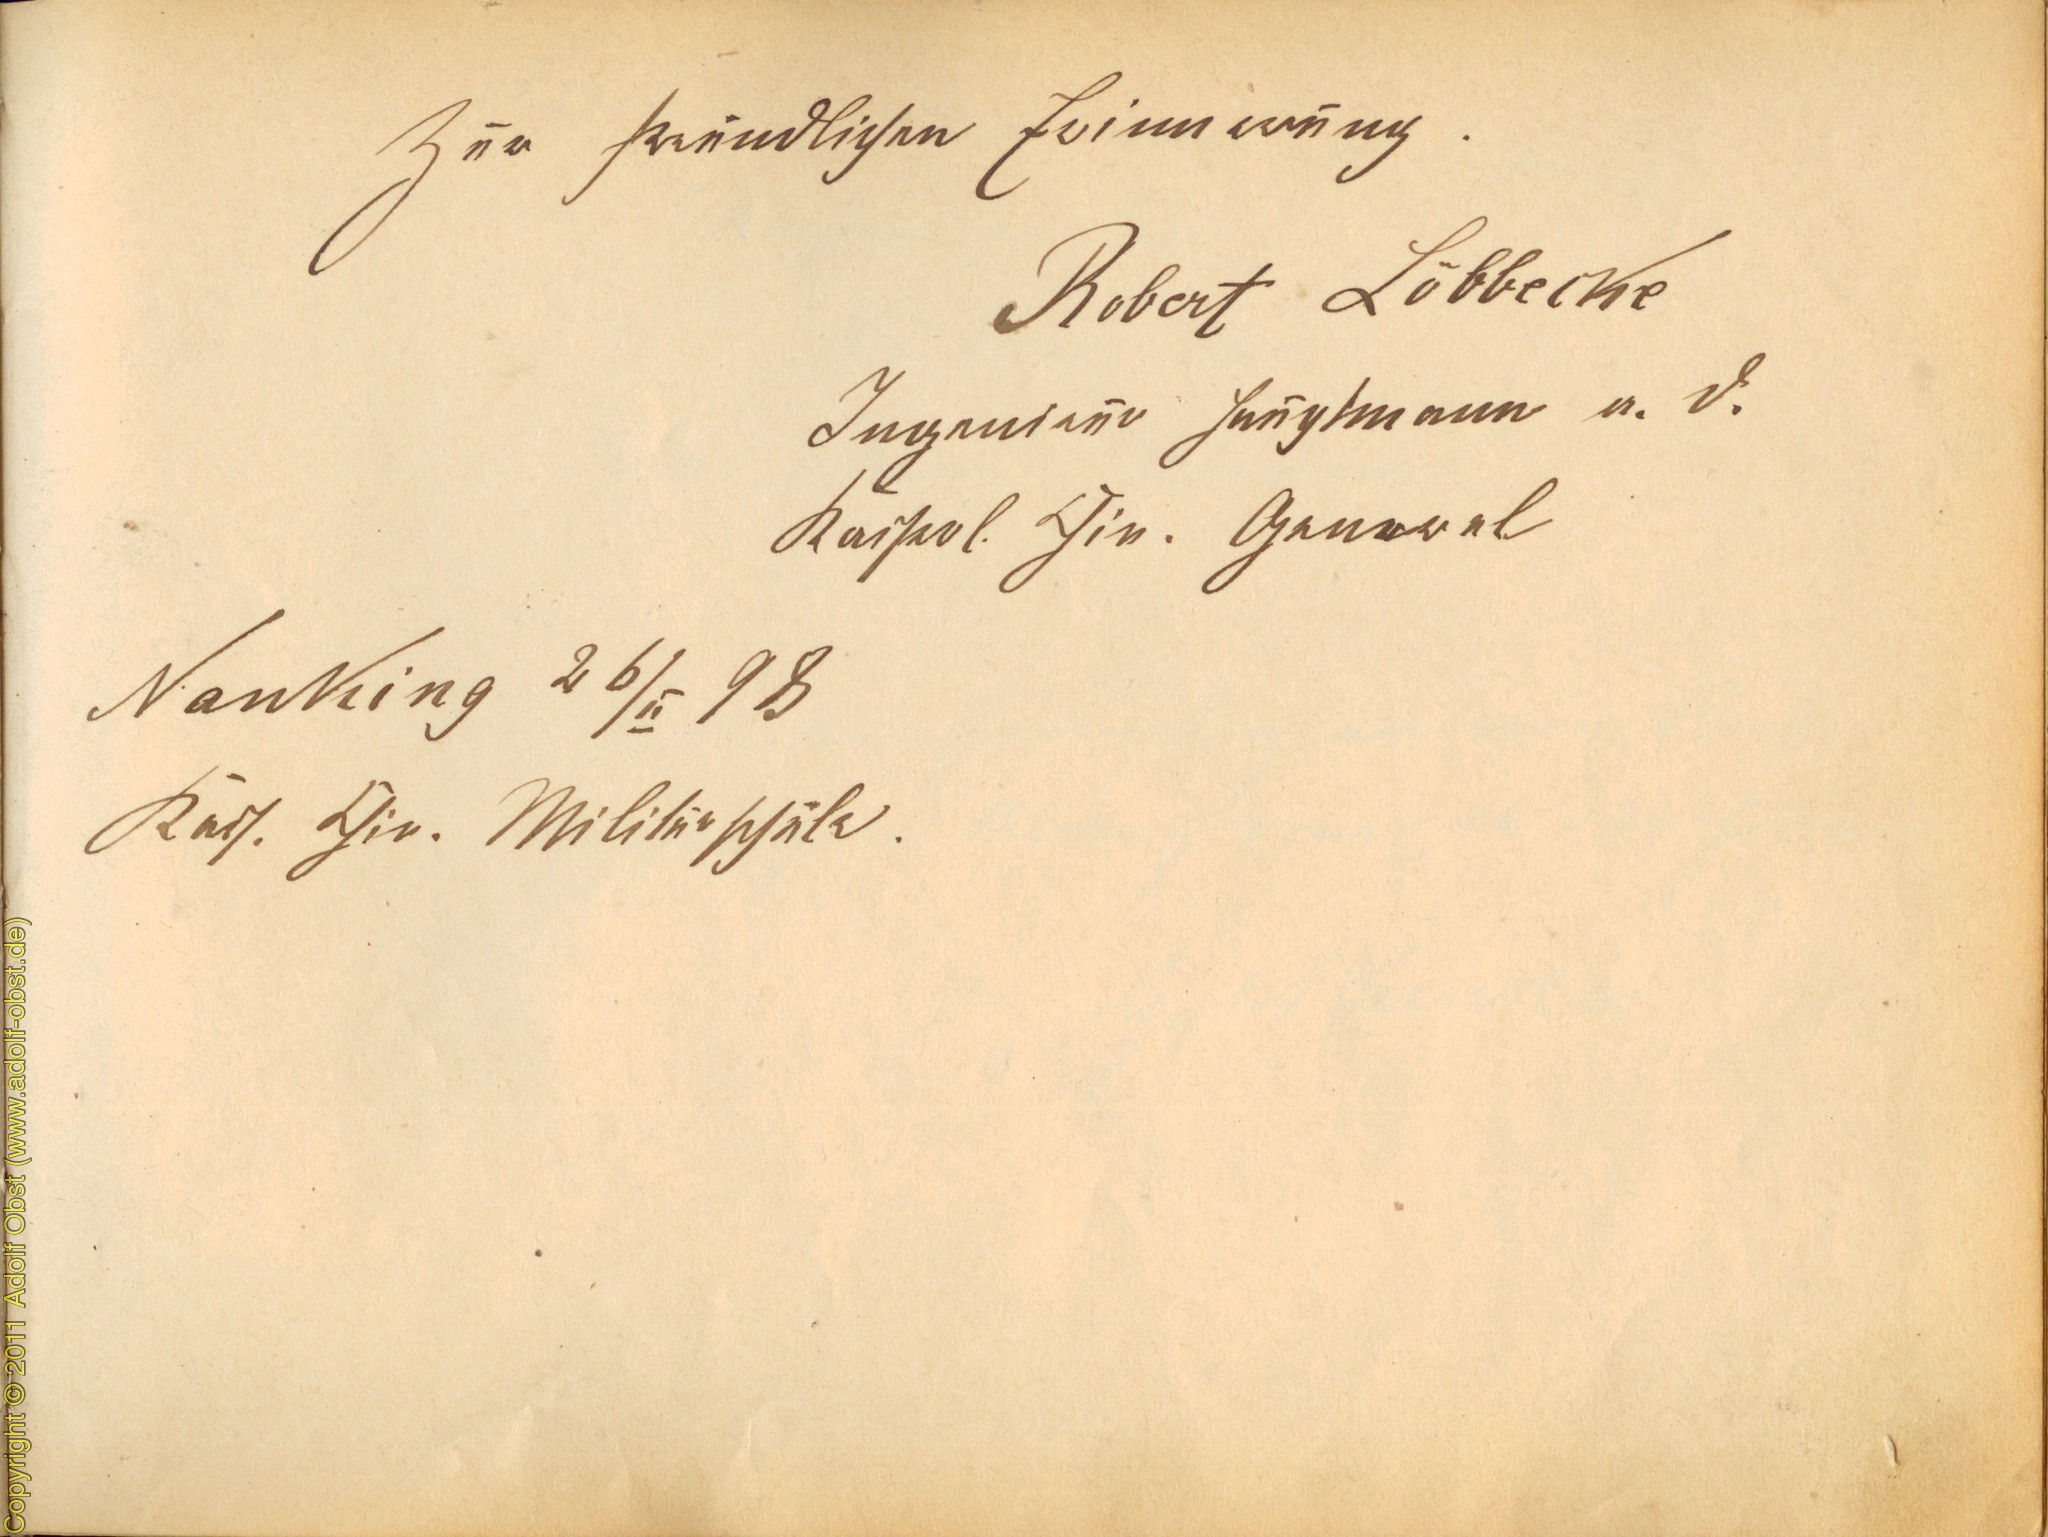 Zur freundlichen Erinnerung.
Robert Löbbecke
Ingenieur Hauptmann a. D.
Kaiserl. Chin. General
Nanking 26/II 98
Kais. Chin. Militärschule.
Copyright © 2011 Adolf Obst (www.adolf-obst.de)